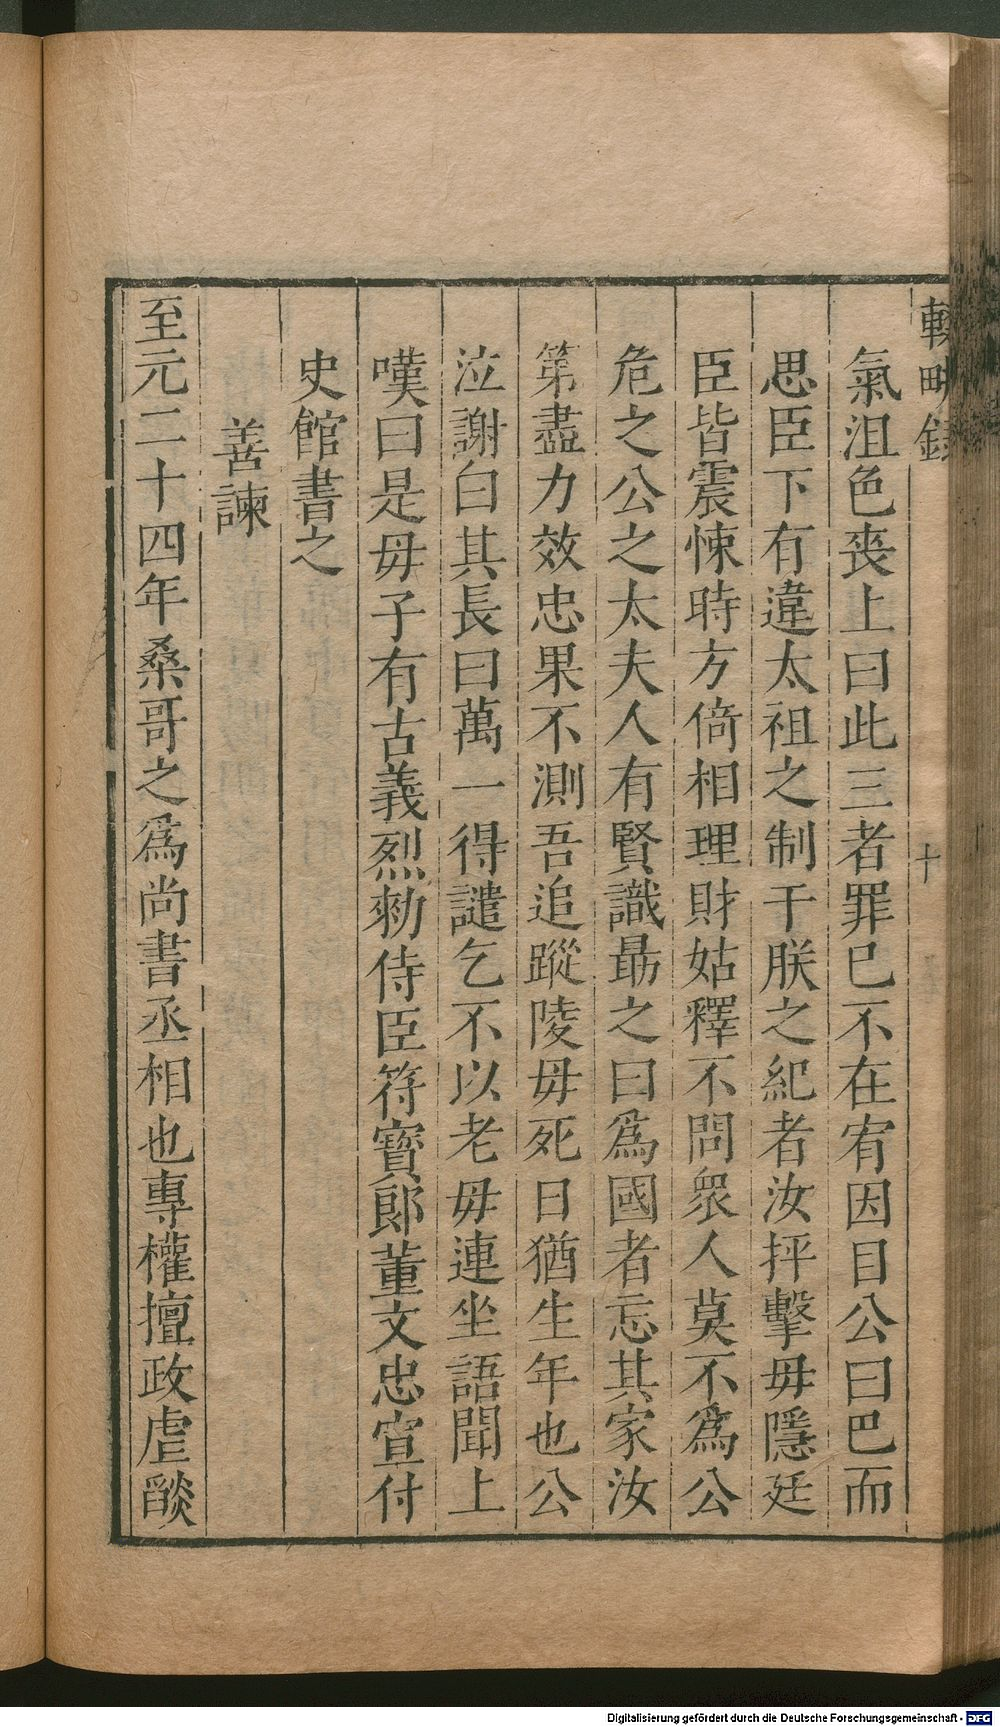 輟畊錄
十
氣沮色喪上曰此三者罪已不在宥因目公曰巴而
思臣下有違太祖之制干朕之紀者汝抨擊毋隱廷
臣皆震悚時方倚相理財姑釋不問眾人莫不爲公
危之公之太夫人有賢識勗之曰爲國者忘其家汝
第盡力效忠果不測吾追蹤陵毋死日猶生年也公
泣謝白其長曰萬一得譴乞不以老毋連坐語聞上
嘆曰是毋子有古義烈勑侍臣符寶郞董文忠宣付
史館書之
善諫
至元二十四年桑哥之爲尚書丞相也專權擅政虐燄
Digitalisierung gefördert durch die Deutsche Forschungsgemeinschaft - DFG